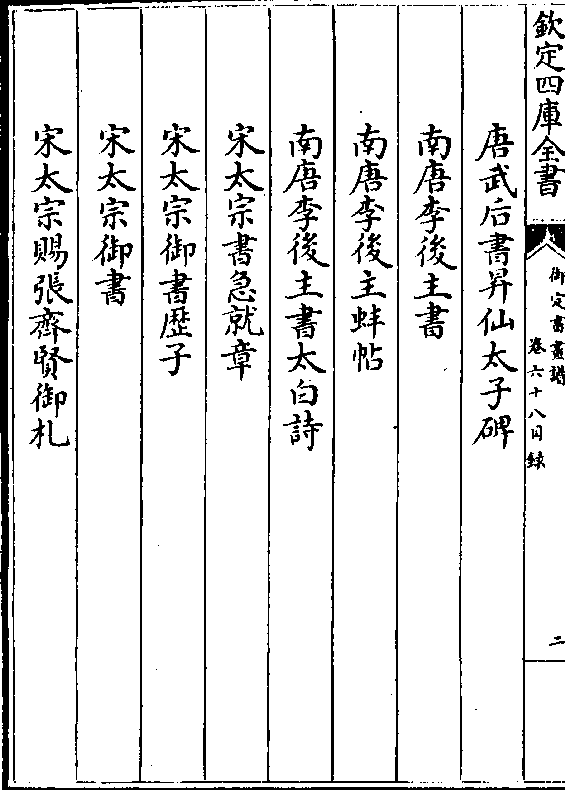 欽定四庫全書
御定書畫譜
卷六十八目錄
二
唐武后書昇仙太子碑
南唐李後主書
南唐李後主蚌帖
南唐李後主書太白詩
宋太宗書急就章
宋太宗御書歴子
宋太宗御書
宋太宗賜張齊賢御札